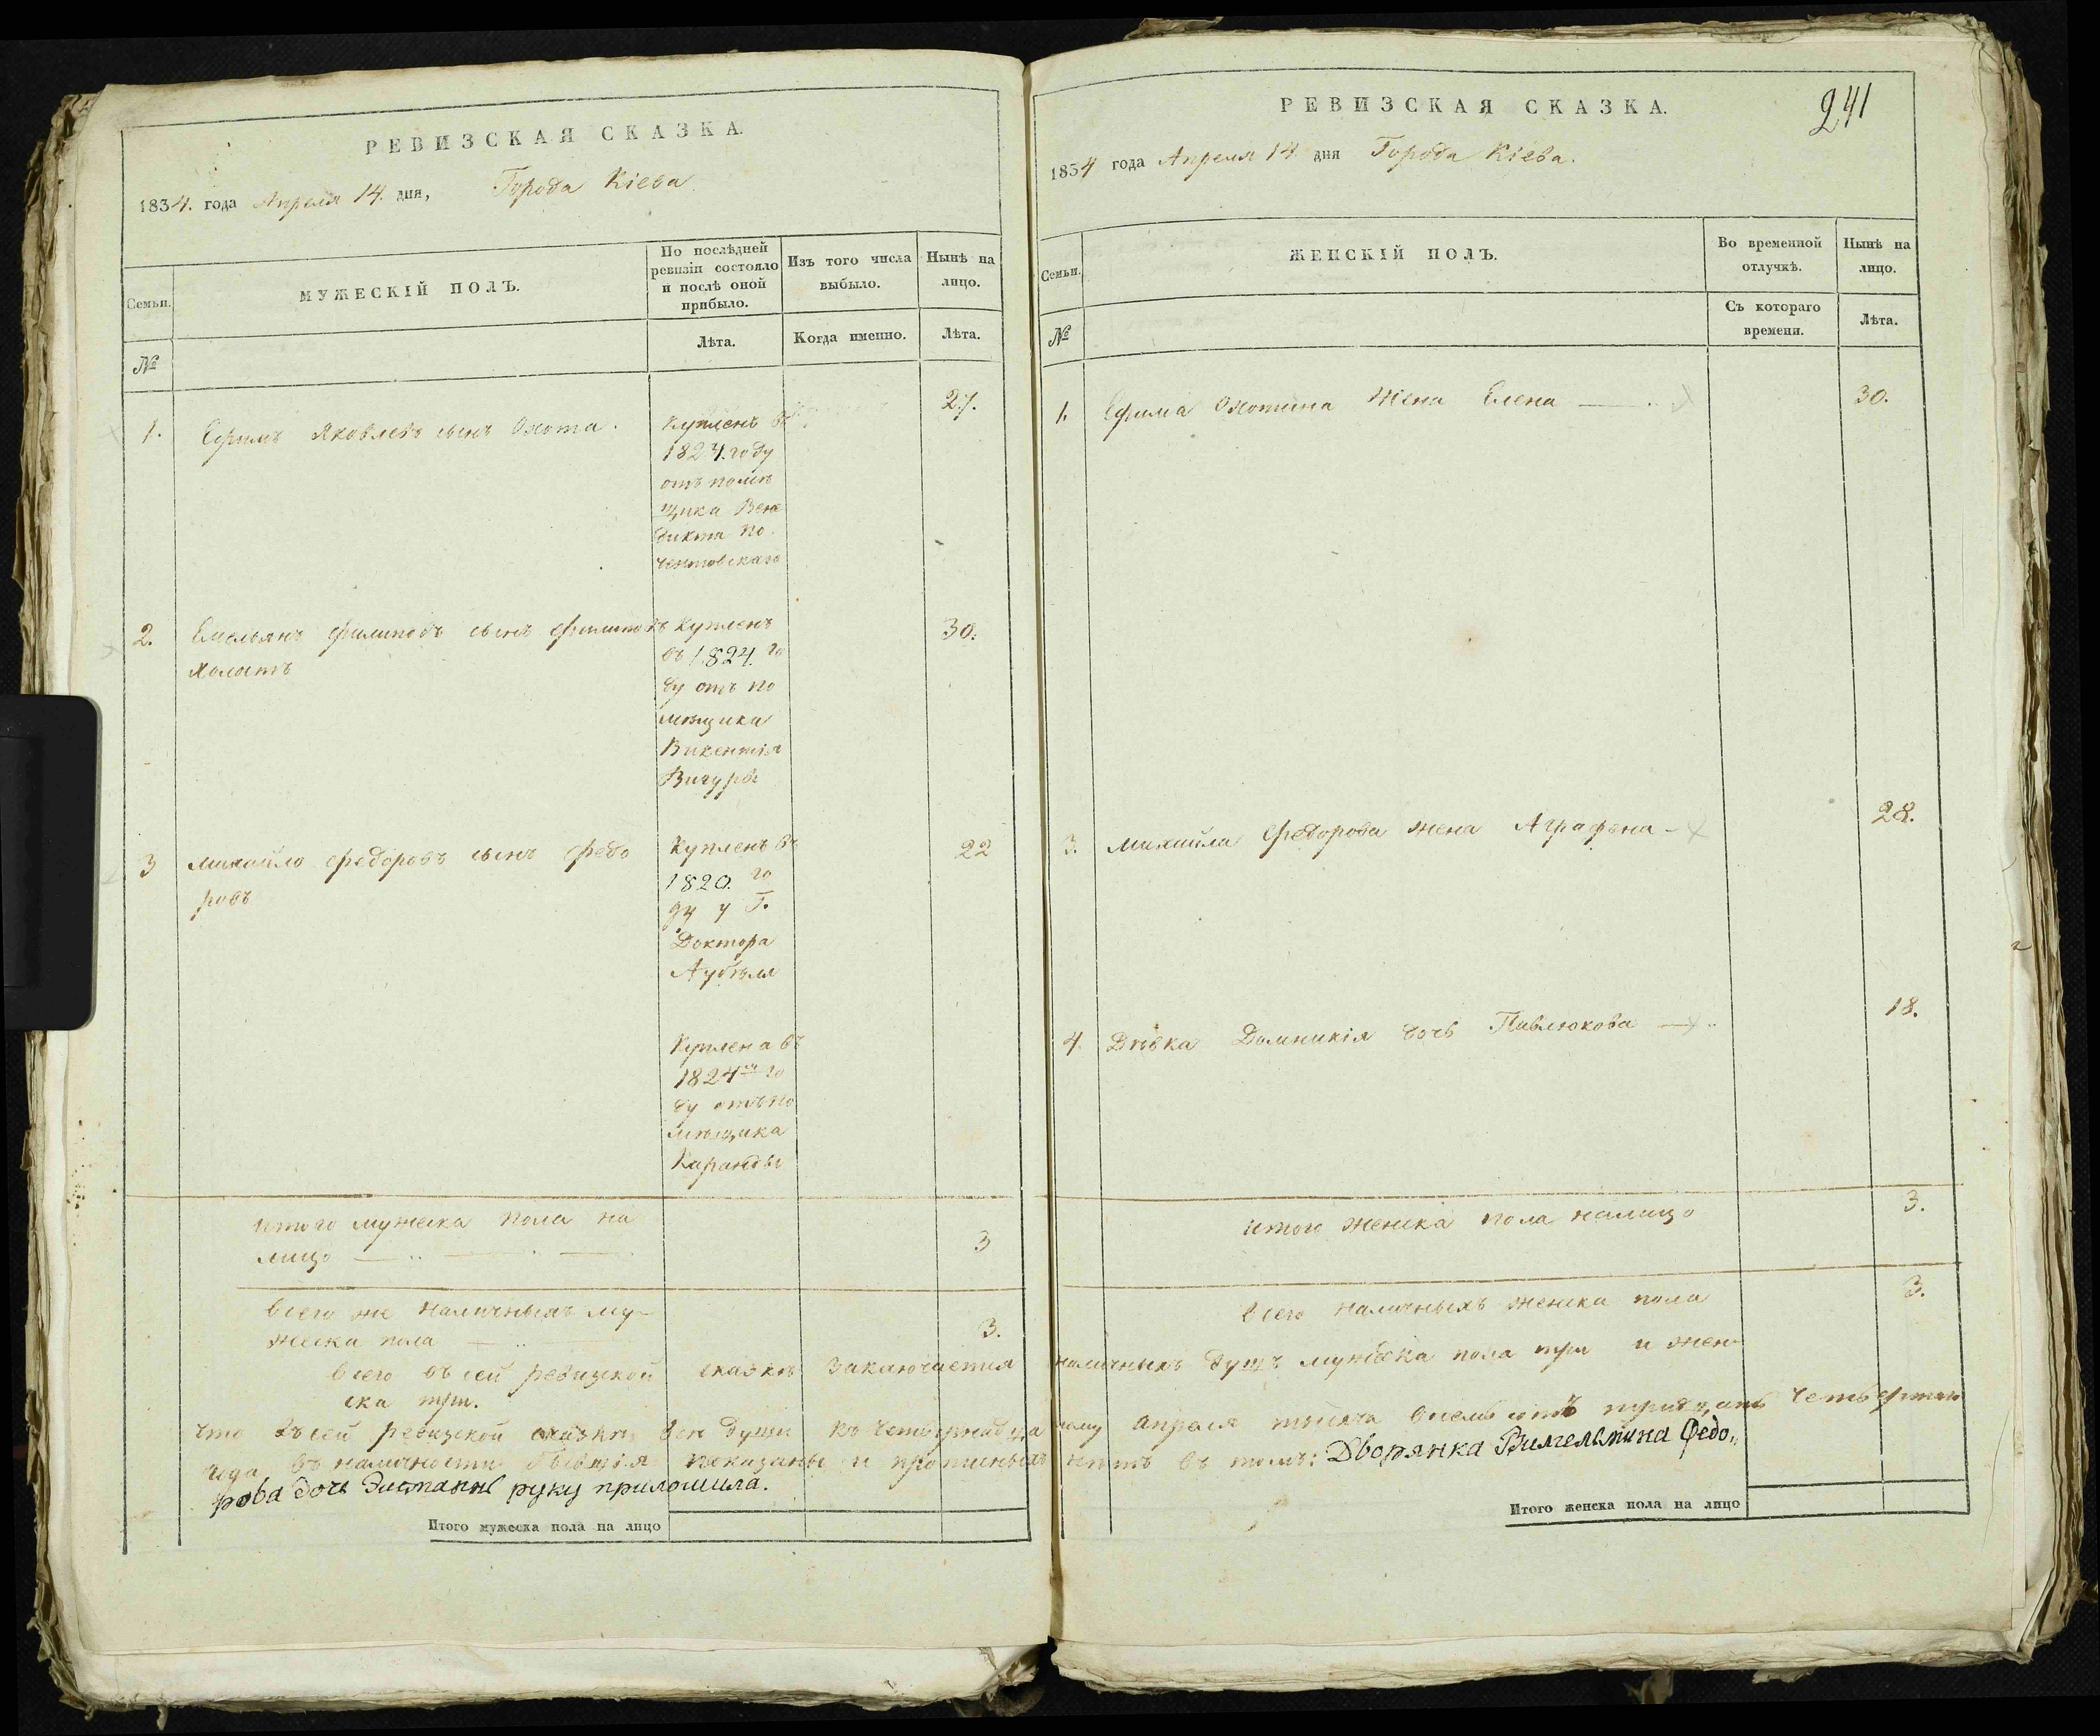 РЕВИЗСКАЯ СКАЗКА.
1834. года Апреля 14. дня, Города Кіева
Семьи.
МУЖЕСКІЙ ПОЛЪ.
По послѣдней
ревизіи состояло
и послѣ оной
прибыло.
Изъ того числа
выбыло.
Нынѣ на
лицо.
№
Лѣта.
Когда именно.
Лѣта.
1. Ефимъ Яковлевъ сынъ Охота.
Купленъ въ
1824. году
отъ помѣ
щика Вене
дикта По
чентовскаго
27.
2. Емельянъ Филиповъ сынъ Филиповъ
холостъ
Купленъ
въ 1824. го
ду отъ по
мѣщика
Викентія
Вигуры
30.
3 Михайло Федоровъ сынъ Федо
ровъ
Купленъ въ
1820. го
ду у Г.
Доктора
22
Куплена въ
1824м го
ду отъ по
мѣщика
Итого мужеска пола на
лицо
3
Всего же наличныхъ му-
жеска пола
3.
РЕВИЗСКАЯ СКАЗКА.
241
1834 года Апреля 14 дня Города Кіева.
Семьи.
ЖЕНСКІЙ ПОЛЪ.
Во временной
отлучкѣ.
Нынѣ на
лицо.
№
Съ котораго
времени.
Лѣта.
1. Ефима Охотина жена Елена 30.
3. Михайла Федорова жена Аграфена 28.
4. Дѣвка Домникія дочь Павлюкова 18.
Итого женска пола налицо 3.
Всего наличныхъ женска пола 3.
Всего въ сей ревизской сказкѣ заключается наличныхъ душъ мужеска пола три и жен-
ска три.
Что въ сей ревизской сказкѣ все души къ четырнадцатому апреля тысяча восемь сотъ тридцать четвертаго
года въ наличности бывшія показаны и прописныхъ нѣтъ въ томъ: Дворянка Вилгельмина Федо„
рова дочь руку приложила.
Итого мужеска пола на лицо
Итого женска пола на лицо